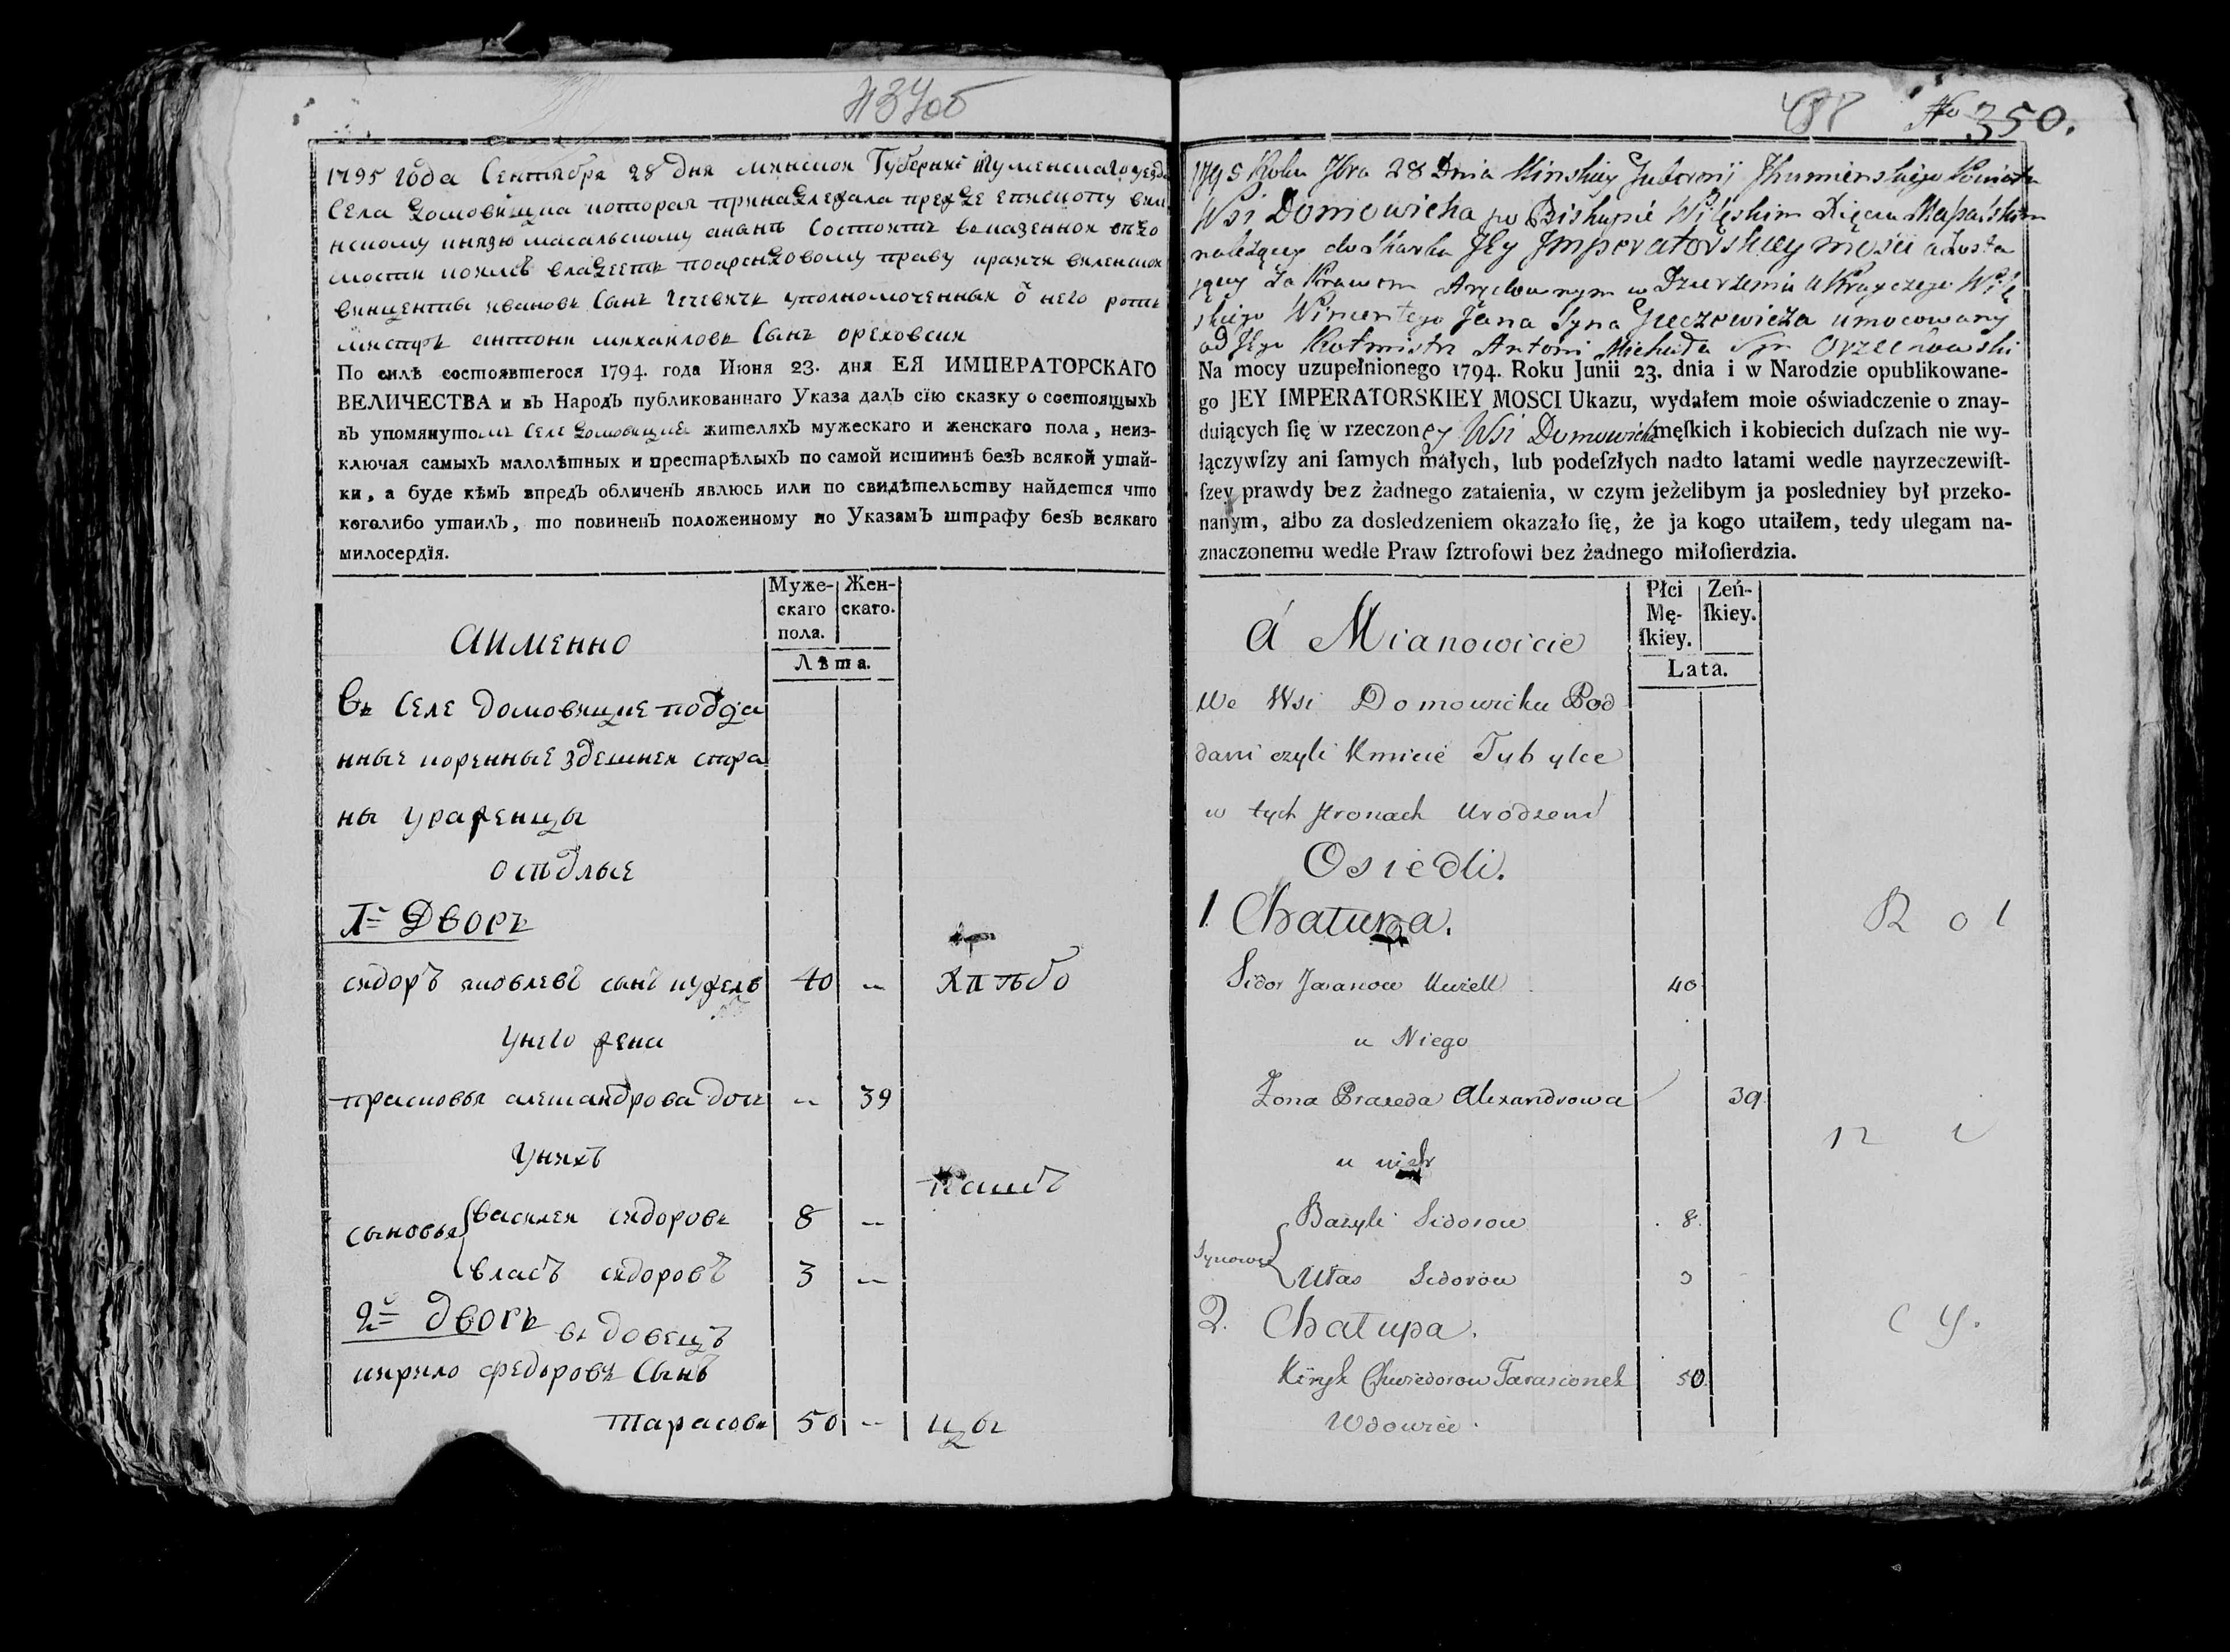 437об
1795 года Сентября 28 дня минской Губернії Игуменскаго уезда
Села домовицка которая принадлежала прежде епископу вил
нскому князю масальскому а нанѣ состоитъ в казенном вѣдо
мости коимъ владеетъ поарендовому праву крайчи виленской
винценты ивановъ Сынъ Гечевичъ уполномоченных ѿ него ротъ
мистръ антони михаиловъ Сынъ ореховски
По силѣ состоявшегося 1794. года Июня 23. дня ЕЯ ИМПЕРАТОРСКАГО
ВЕЛИЧЕСТВА и въ Народъ публикованнаго Указа далъ сїю сказку о состоящыхъ
въ упомянутомъ Селе домовицке жителяхъ мужескаго и женскаго пола, неиз-
ключая самыхъ малолѣтных и престарѣлыхъ по самой истиннѣ безъ всякой утай-
ки, а буде кѣмъ впредъ обличенъ явлюсь или по свидѣтельству найдется что
коголибо утаилъ, то повиненъ положенному по Указамъ штрафу безъ всякаго
милосердїя.
Муже-
скаго
пола.
Жен-
скаго.
Лѣта.
АИМЕННО
въ Селе домовицке подда
нные коренные здешнея стра
ны ураженцы
осѣдлые
1й Дворъ
сидоръ яковлевъ сынъ кужель 40 --
хлѣбо
Унего жена
прасковья александрова дочь -- 39
Унихъ
пашъ
сыновья василей сидоровъ 8 --
власъ сидоровъ 3 --
2й дворъ вдовецъ
кирило федоровъ Сынъ
тарасовъ 50 -- цы
488 No 350.
1795 Roku 7bra 28 Dnia Minskiey Gubernij Jhumienskiego Powiatu
Wsi Domowicka po Biskupie Wileńskim Xięciu Massalskim
należącey do skarbu Jey Imperatorskiey mości a zosta
jącey za Prawem Arędownym w Dzierżeniu u Krayczego Wile
skiego Wincentego Jana Syna Gieczewicza umocowany
od Jego Rotmistrz Antoni Michała Syn Orzechowski
Na mocy uzupełnionego 1794. Roku Junii 23. dnia i w Narodzie opublikowane-
go JEY IMPERATORSKIEY MOSCI Ukazu, wydałem moie oświadczenie o znay-
duiących ſię w rzeczoney Wsi Domowicka męſkich i kobiecich duſzach nie wy-
łączywſzy ani ſamych małych, lub podeſzłych nadto latami wedle nayrzeczewiſt-
ſzey prawdy bez żadnego zataienia, w czym jeżelibym ja posledniey był przeko-
nanym, albo za dosledzeniem okazało ſię, że ja kogo utaiłem, tedy ulegam na-
znaczonemu wedle Praw ſztrofowi bez żadnego miłoſierdzia.
Płci
Mę-
ſkiey.
Zeń-
ſkiey.
Lata.
á Mianowicie
We Wsi Domowicku Pod
dani czyli Kmicie Tubylce
w tych stronach Urodzeni
Osiedli.
1. Chałupa.
R o l
Sidor Jakanow Kużell 40
u Niego
Zona Praxeda Alexandrowa 39
n i
u nich
Synowie Bazyli Sidorow 8.
Ułas Sidorow 3
2. Chałupa.
c y.
Kiryk Chwiedorow Tarasionek 50.
Wdowiec.